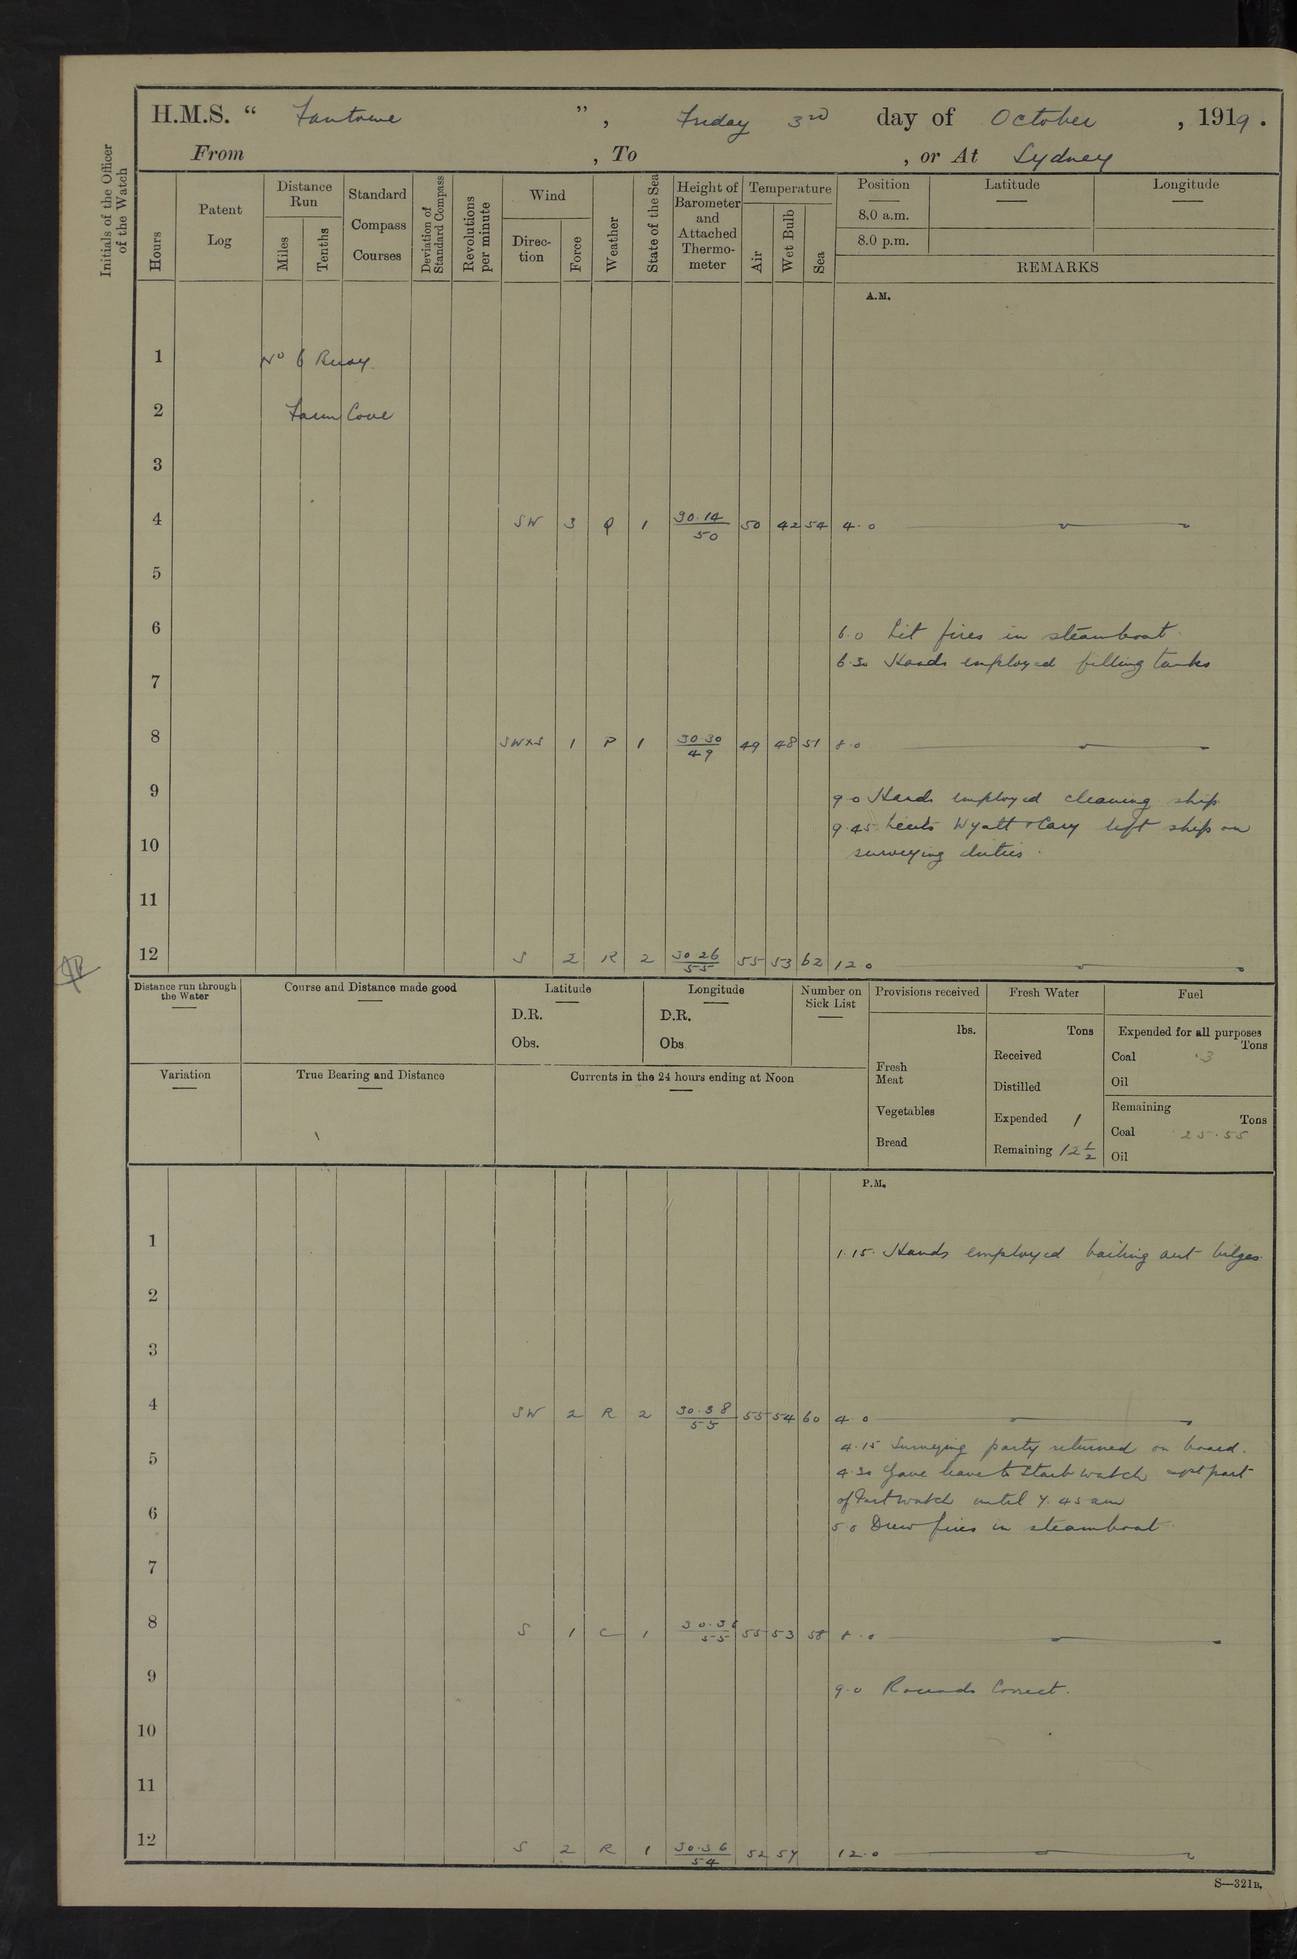 H.M.S. “ Fantome ”, Friday 3rd day of October, 1919.
From , To , or At Sydney
Initials of the Officer of the Watch
Hours
Patent Log
Distance Run
Miles
Tenths
Standard Compass Courses
Deviation of Standard Compass
Revolutions per minute
Wind
Direction
Force
Weather
State of the Sea
Height of Barometer and Attached Thermometer
Temperature
Air
Wet Bulb
Sea
Position Latitude Longitude
8.0 a.m.
8.0 p.m.
REMARKS
A.M.
1 No 6 Buoy
2 Farm Cove
3
4 SW 3 Q 1 30.14/50 50 42 54 4.0
5
6 6.0 Lit fires in steamboat.
6.30 Hands employed filling tanks
7
8 SWxS 1 P 1 30.30/49 49 48 51 8.0
9 9.0 Hands employed cleaning ship
9.45 Lieuts Wyatt & Cary left ship on
10 surveying duties.
11
12 S 2 R 2 30.26/55 55 53 62 12.0
Distance run through the Water
Course and Distance made good
Latitude
D.R.
Obs.
Longitude
D.R.
Obs
Number on Sick List
Variation
True Bearing and Distance
Currents in the 24 hours ending at Noon
Provisions received
lbs.
Fresh Meat
Vegetables
Bread
Fresh Water
Tons
Received
Distilled
Expended 1
Remaining 12 1/2
Fuel
Expended for all purposes
Tons
Coal .3
Oil
Remaining
Tons
Coal 25.55
Oil
P.M.
1 1.15. Hands employed bailing out bilges.
2
3
4 SW 2 R 2 30.38/55 55 54 60 4.0
4.15 Surveying party returned on board.
5 4.30 Gave leave to Starb watch 1st part
of Port watch until 7.45 am
6 5.0 Drew fires in steamboat
7
8 S 1 C 1 30.36/55 55 53 58 8.0
9 9.0 Rounds Correct.
10
11
12 S 2 R 1 30.36/54 52 12.0
S—321B.